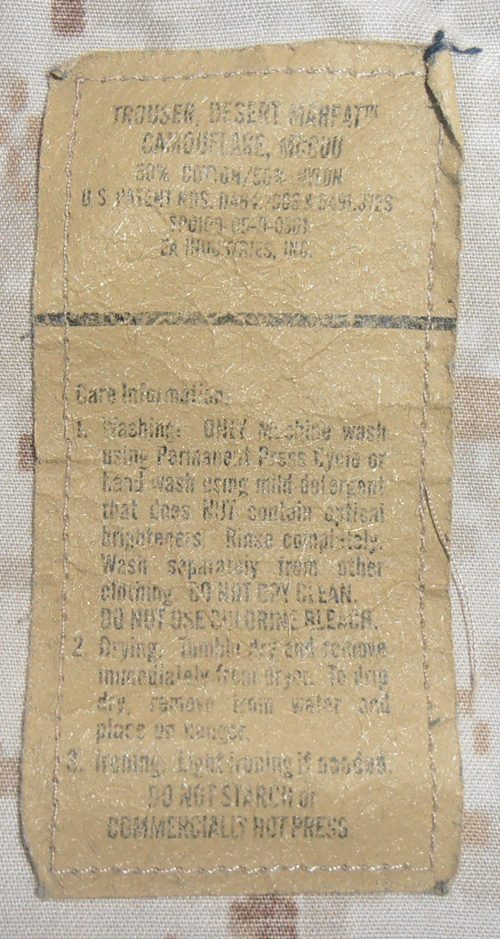 TROUSER, DESERT MARPAT™
CAMOUFLAGE, MCCUU
50% COTTON/50% NYLON
U.S. PATENT NOS.
INDUSTRIES, INC.
Care Information:
1. Washing: ONLY Machine wash
using Permanent Press Cycle or
hand wash using mild detergent
that does NOT contain optical
brighteners. Rinse completely.
Wash separately from other
clothing. DO NOT DRY CLEAN.
DO NOT USE CHLORINE BLEACH.
2. Drying: Tumble dry and remove
immediately from dryer. To drip
dry, remove from water and
place on hanger.
3. Ironing: Light ironing if needed.
DO NOT STARCH or
COMMERCIALLY HOT PRESS.